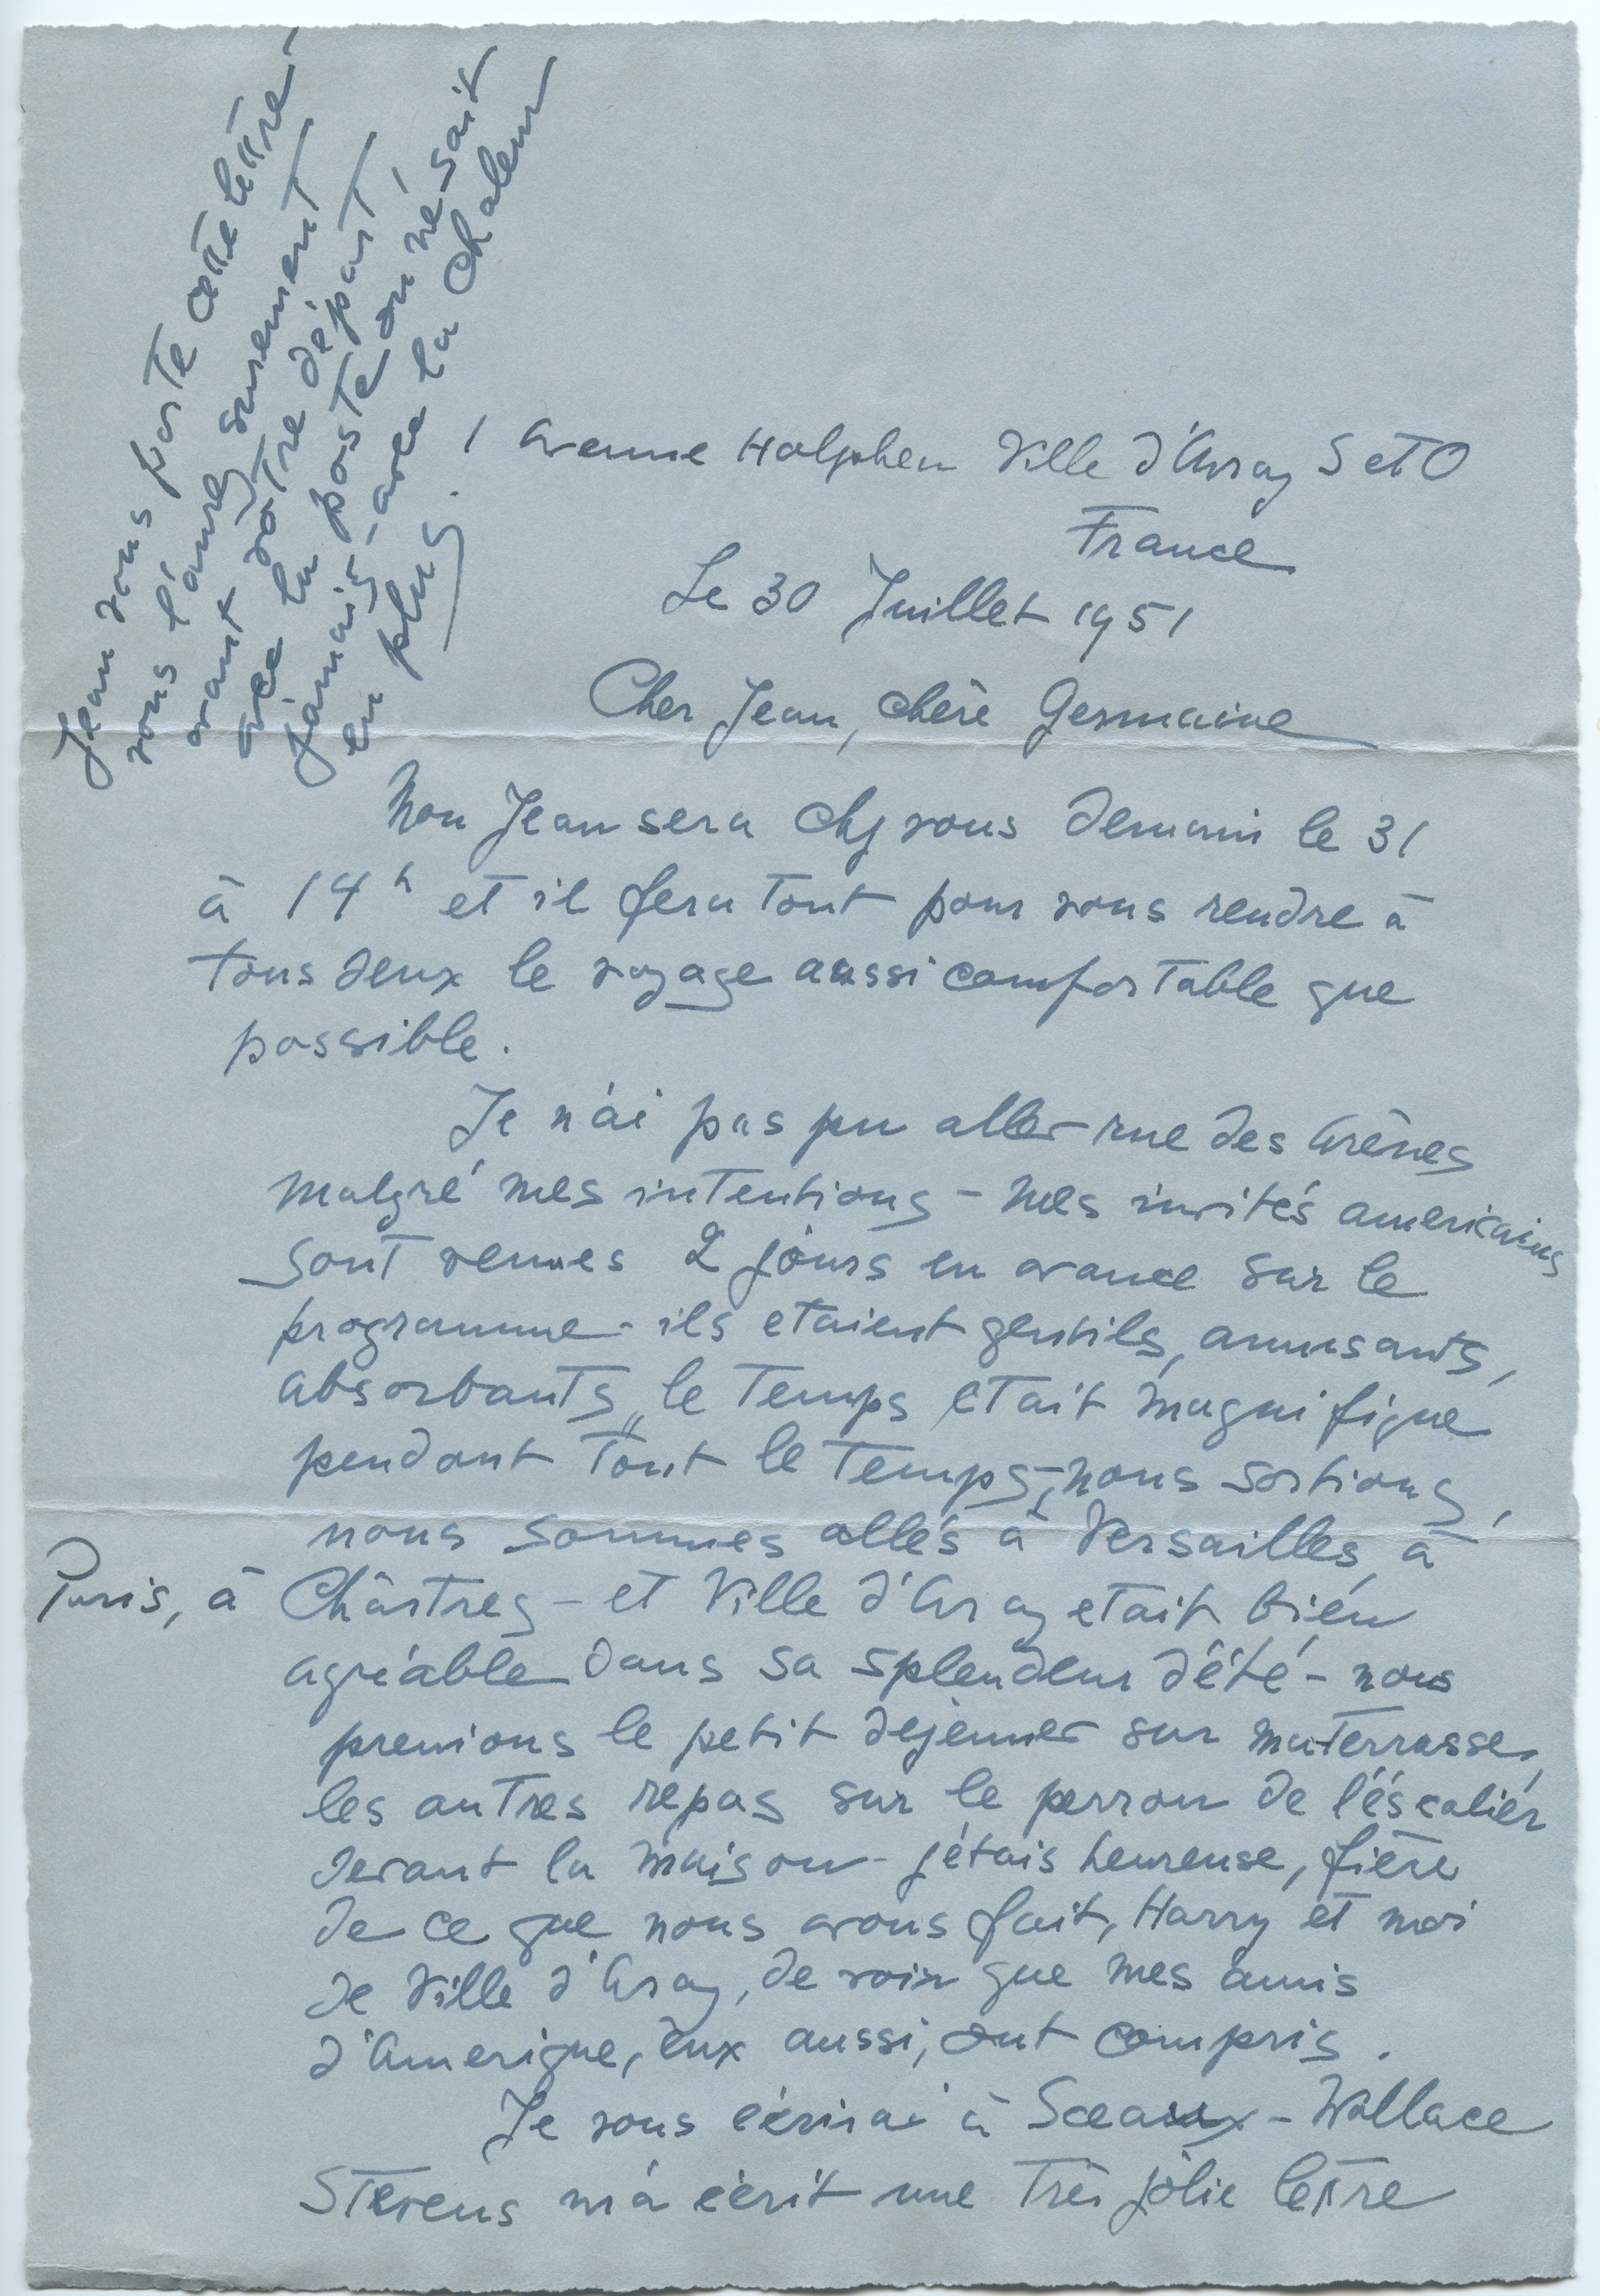 Jean vous porte cette lettre -
vous l'aurez surement
avant votre départ,
avec la poste on ne sait
jamais - avec la chaleur
en plus.
1 Avenue Halphen Ville d'Avray S et O
France
Le 30 Juillet 1951
Cher Jean, chère Germaine
Mon Jean sera chez vous demain le 31
à 14h et il fera tout pour vous rendre à
tous deux le voyage aussi comfortable que
possible.
Je n'ai pas pu aller rue des Arènes
malgré mes intentions - mes invités americains
sont venues 2 jours en avance sur le
programme - ils etaient gentils, amusants,
absorbants, le temps etait magnifique
pendant tout le temps, nous sortions,
nous sommes allés à Versailles, à
Paris, à Chârtres - et Ville d'Avray etait bién
agréable dans sa splendeur d'été - nous
prenions le petit dejeuner sur ma terrasse,
les autres repas sur le perron de l'éscaliér
devant la maison - j'étais heureuse, fière
de ce que nous avons fait, Harry et moi
de Ville d'Avray, de voir que mes amis
d'Amerique, eux aussi, ont compris.
Je vous écrirai à Sceaux - Wallace
Stevens m'a écrit une très jolie lettre